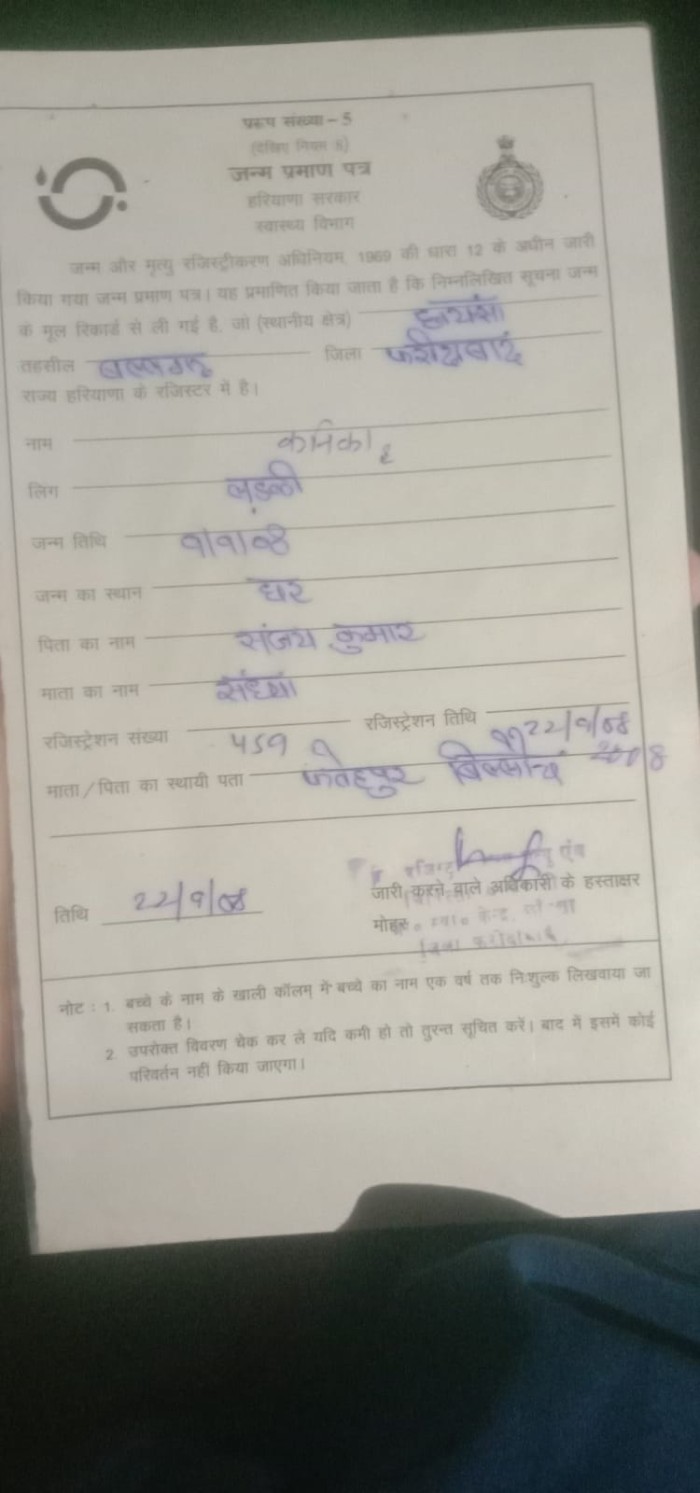 प्ररूप संख्या - 5
(देखिए नियम 8)
जन्म प्रमाण पत्र
हरियाणा सरकार
स्वास्थ्य विभाग
जन्म और मृत्यु रजिस्ट्रीकरण अधिनियम, 1969 की धारा 12 के अधीन जारी
किया गया जन्म प्रमाण पत्र। यह प्रमाणित किया जाता है कि निम्नलिखित सूचना जन्म
के मूल रिकार्ड से ली गई है, जो (स्थानीय क्षेत्र) छायंसा
तहसील बल्लबगढ़ जिला फरीदाबाद
राज्य हरियाणा के रजिस्टर में है।
नाम कनिका
लिंग लड़की
जन्म तिथि 9/9/08
जन्म का स्थान घर
पिता का नाम संजय कुमार
माता का नाम संध्या
रजिस्ट्रेशन संख्या 459 रजिस्ट्रेशन तिथि 22/9/08
माता/पिता का स्थायी पता फतेहपुर बिल्लौच 2008
तिथि 22/9/08
जारी करने वाले अधिकारी के हस्ताक्षर
मोहर
नोट : 1. बच्चे के नाम के खाली कॉलम में बच्चे का नाम एक वर्ष तक निःशुल्क लिखवाया जा
सकता है।
2. उपरोक्त विवरण चेक कर ले यदि कमी हो तो तुरन्त सूचित करें। बाद में इसमें कोई
परिवर्तन नहीं किया जाएगा।